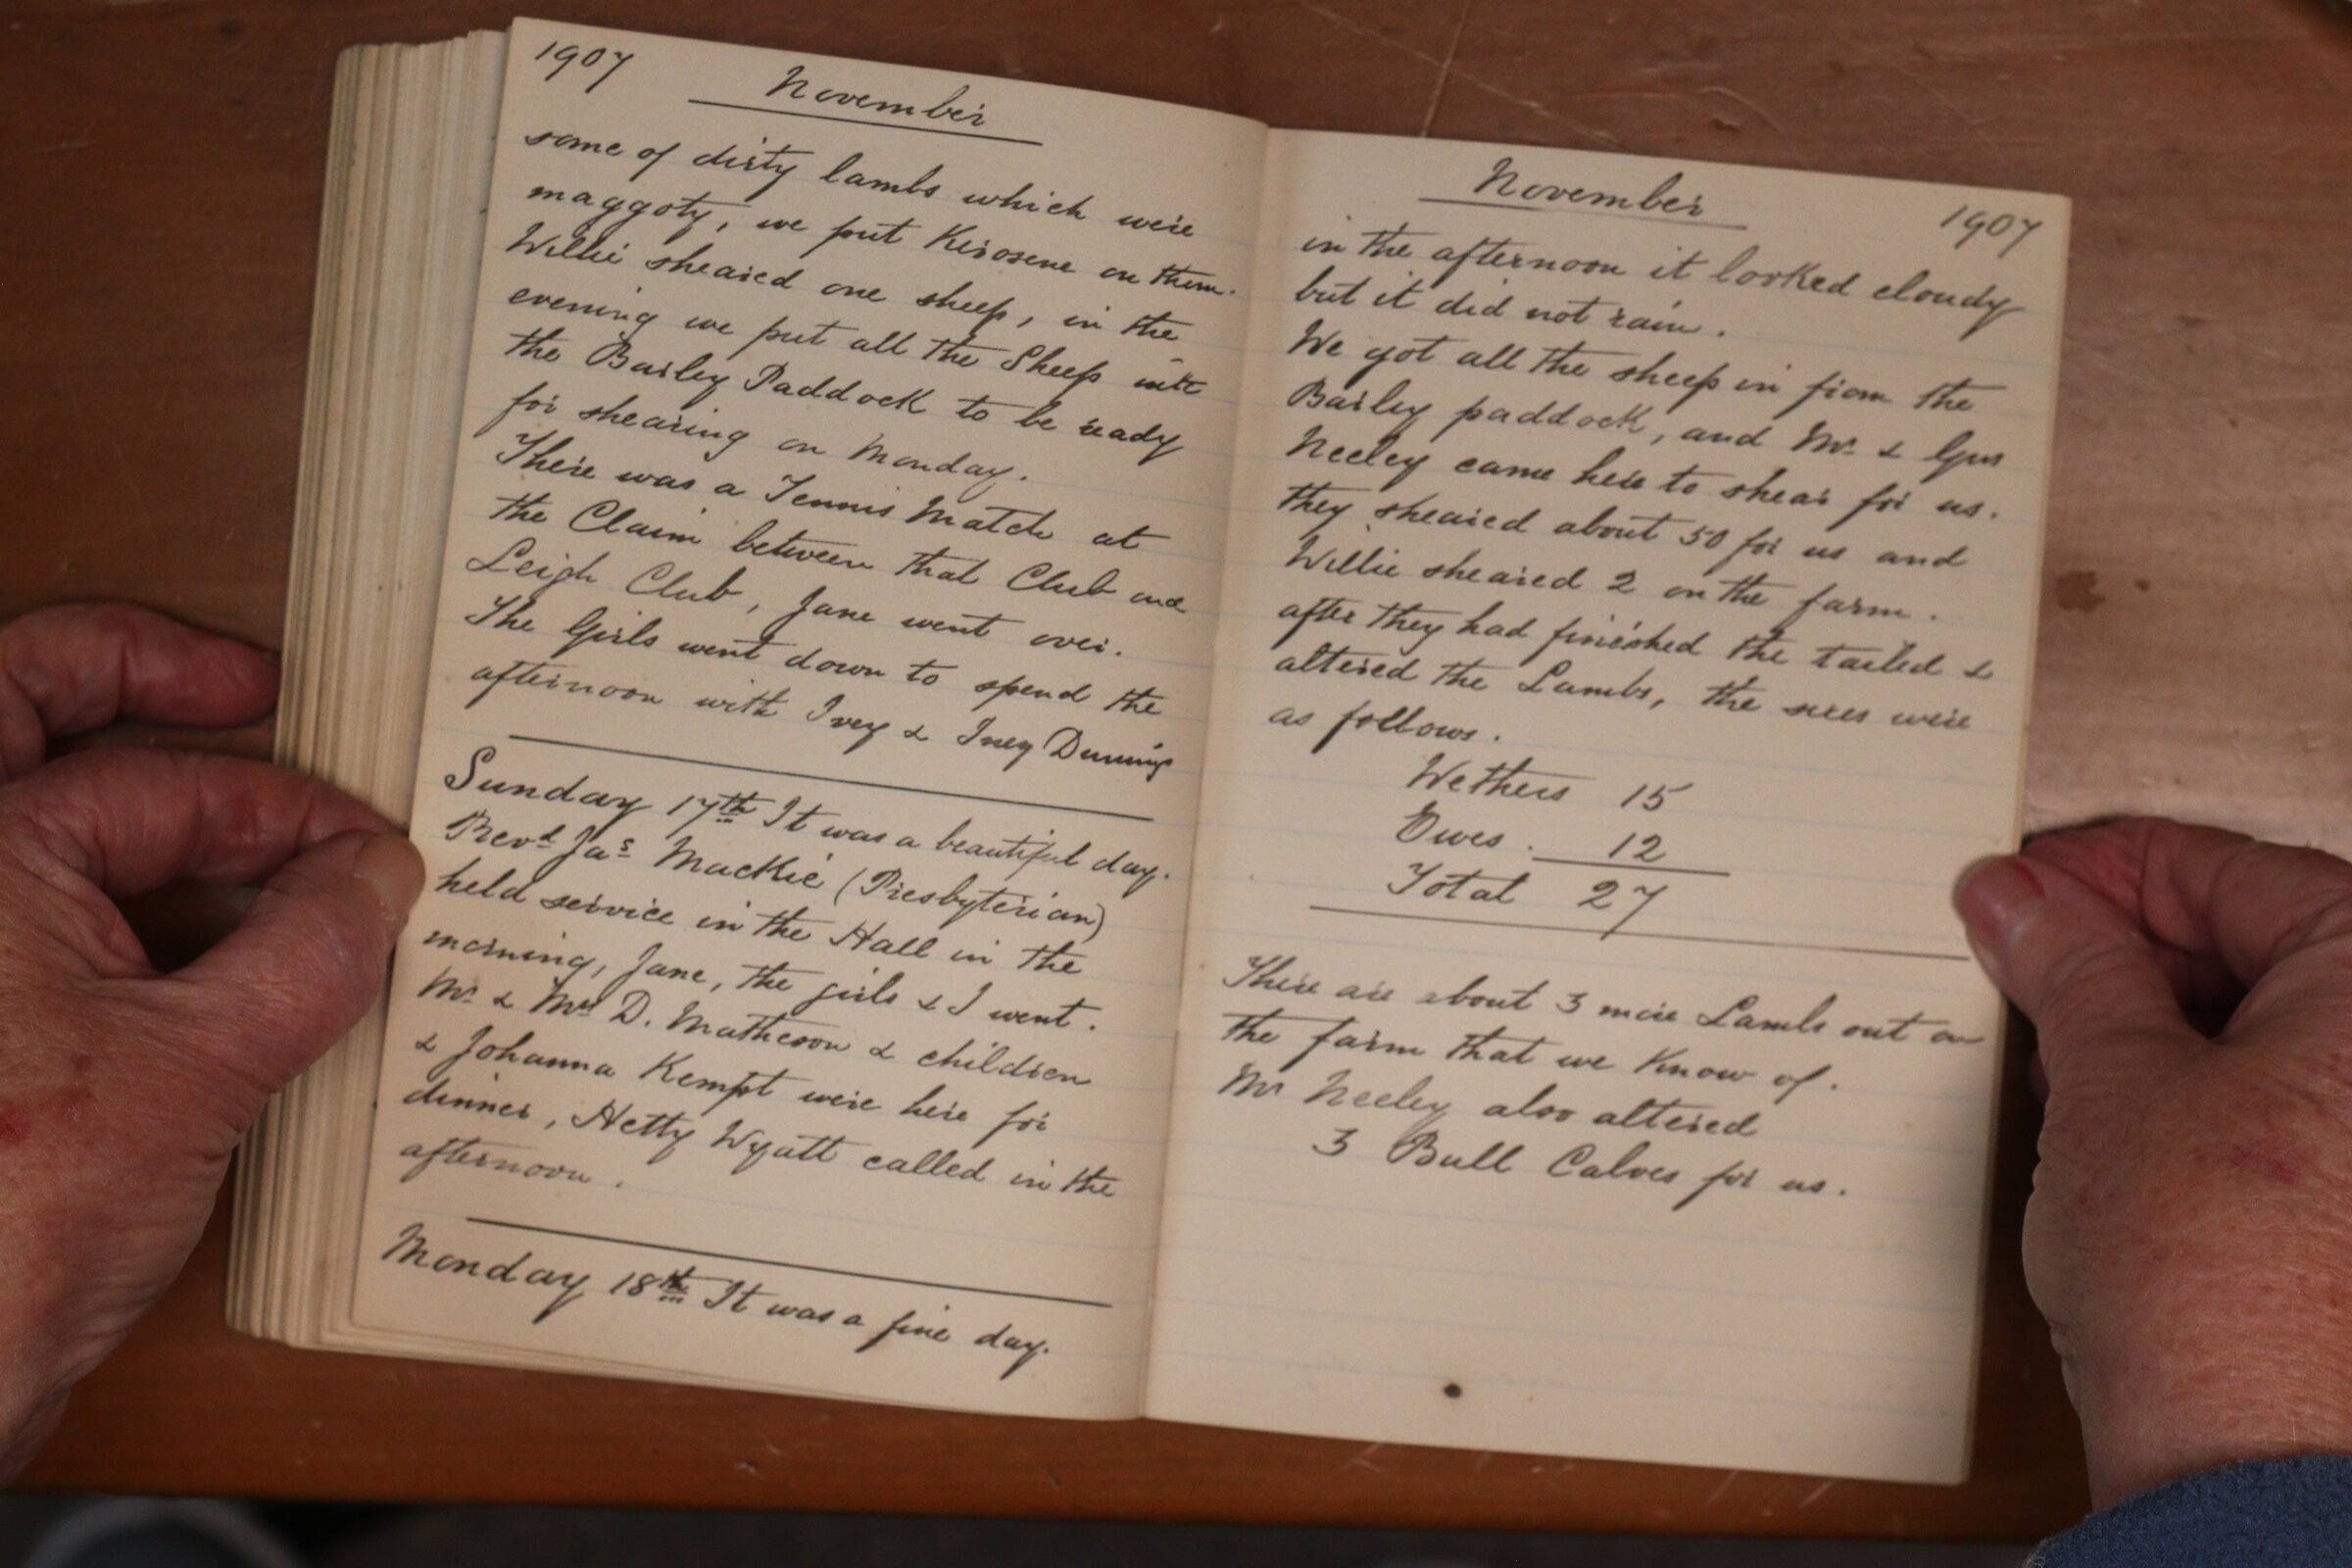 1907
November
some of dirty lambs which were
maggoty, we put Kerosene on them.
Willie sheared one sheep, in the
evening we put all the Sheep into
the Barley Paddock to be ready
for shearing on Monday.
There was a Tennis Match at
the Claim between that Club and
Leigh Club, Jane went over.
The Girls went down to spend the
afternoon with Ivey & Iney Dunning
Sunday 17th It was a beautiful day.
Revd Jas Mackie (Presbyterian)
held service in the Hall in the
morning, Jane, the girls & I went.
Mr & Mrs D. Matheson & children
& Johanna Kempt were here for
dinner, Hetty Wyatt called in the
afternoon.
Monday 18th It was a fine day.
November
1907
in the afternoon it looked cloudy
but it did not rain.
We got all the sheep in from the
Barley paddock, and Mr & Gus
Neeley came here to shear for us.
they sheared about 50 for us and
Willie sheared 2 on the farm.
after they had finished the tailed &
altered the Lambs, the sexes were
as follows.
Wethers 15
Ewes. 12
Total 27
There are about 3 more Lambs out on
the farm that we Know of.
Mr Neeley also altered
3 Bull Calves for us.